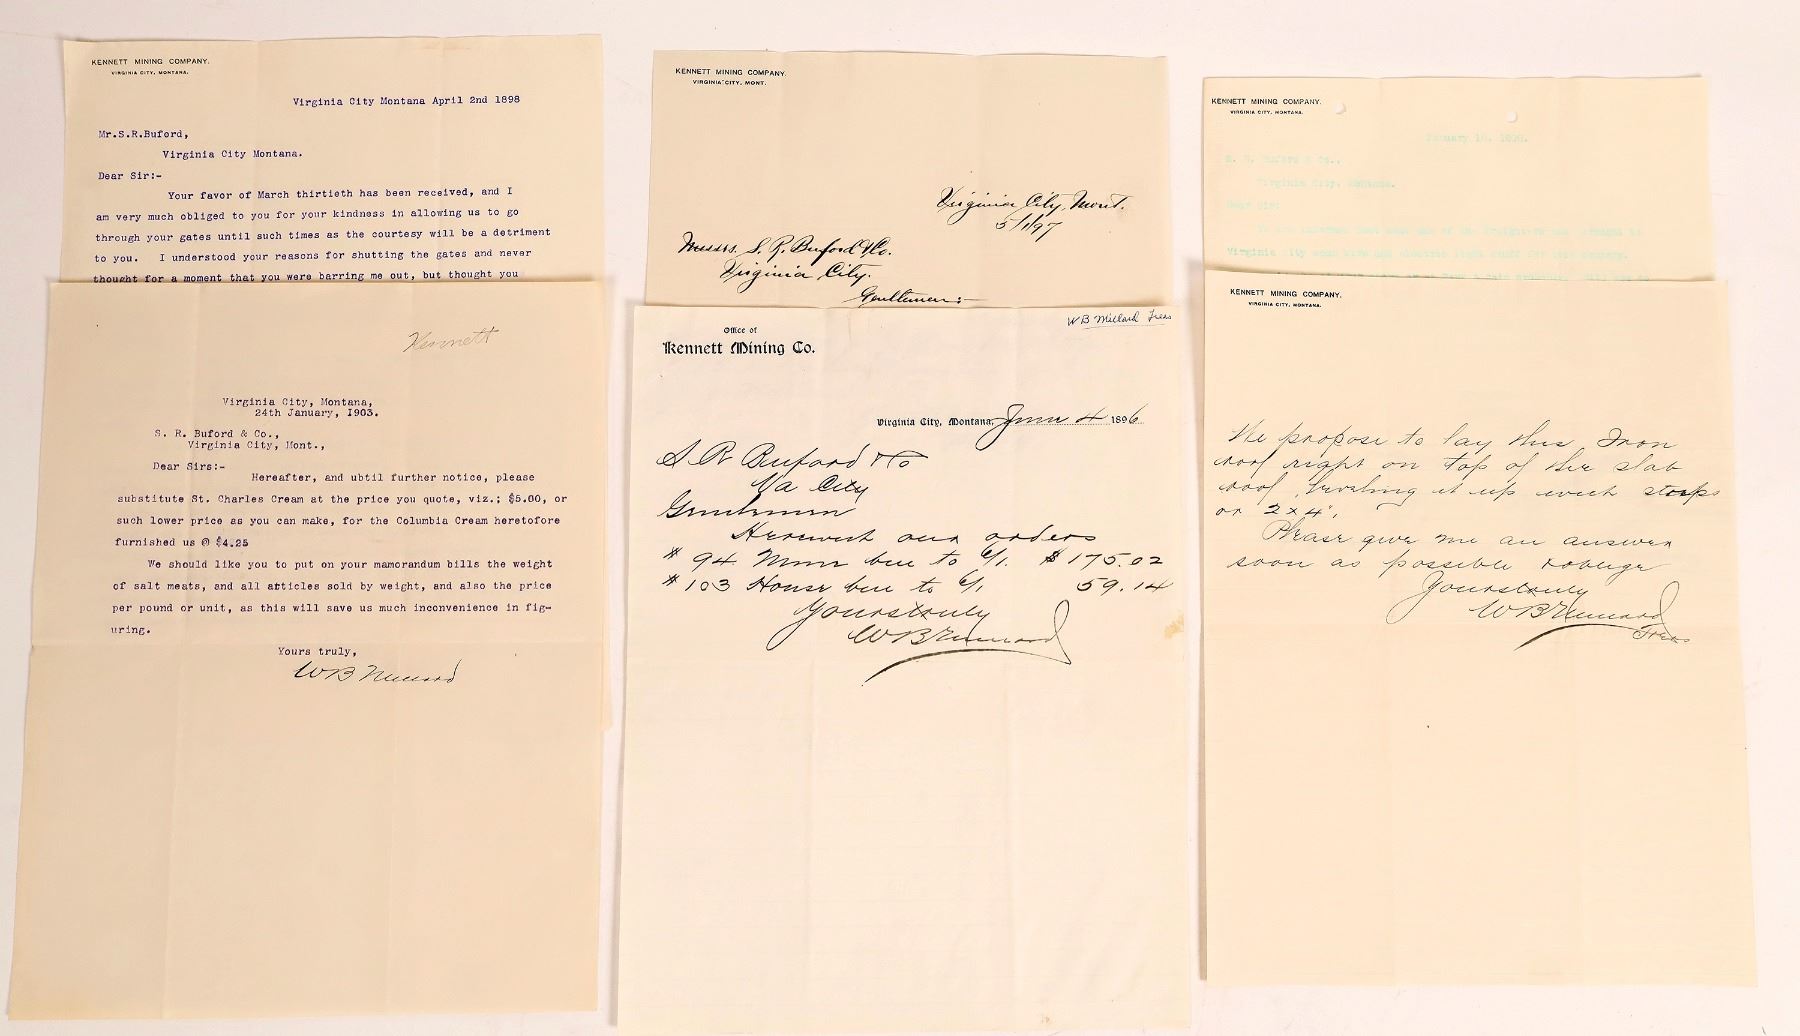 KENNETT MINING COMPANY.
VIRGINIA CITY, MONTANA.
Virginia City Montana April 2nd 1898
Mr.S.R.Buford,
Virginia City Montana.
Dear Sir:-
Your favor of March thirtieth has been received, and I
am very much obliged to you for your kindness in allowing us to go
through your gates until such times as the courtesy will be a detriment
to you. I understood your reasons for shutting the gates and never
thought for a moment that you were barring me out, but thought you
Kennett
Virginia City, Montana,
24th January, 1903.
S. R. Buford & Co.,
Virginia City, Mont.,
Dear Sirs:-
Hereafter, and ubtil further notice, please
substitute St. Charles Cream at the price you quote, viz.; $5.00, or
such lower price as you can make, for the Columbia Cream heretofore
furnished us @ $4.25
We should like you to put on your mamorandum bills the weight
of salt meats, and all atticles sold by weight, and also the price
per pound or unit, as this will save us much inconvenience in fig-
uring.
Yours truly,
WB Millard
KENNETT MINING COMPANY.
VIRGINIA CITY, MONT.
Virginia City, Mont.
5/1/97
Messrs. S. R. Buford & Co.
Virginia City.
Gentlemen:-
WB Millard Treas
Office of
Kennett Mining Co.
Virginia City, Montana, June 4 1896
S R Buford & Co
Va City
Gentlemen
Herewith our orders
# 94 Mine due to 6/1. $175.02
# 103 House due to 6/1 59.14
Yours truly
WB Millard
KENNETT MINING COMPANY.
VIRGINIA CITY, MONTANA.
January 10,
S. R. Buford & Co.,
Virginia City, Montana.
Dear Sir:
Virginia City some wire and electric light stuff for this company.
KENNETT MINING COMPANY.
VIRGINIA CITY, MONTANA.
We propose to lay this Iron
roof right on top of the slab
roof, leveling it up with strips
or 2x4",
Please give me an answer
soon as possible & oblige
Yours truly
WB Millard
Treas